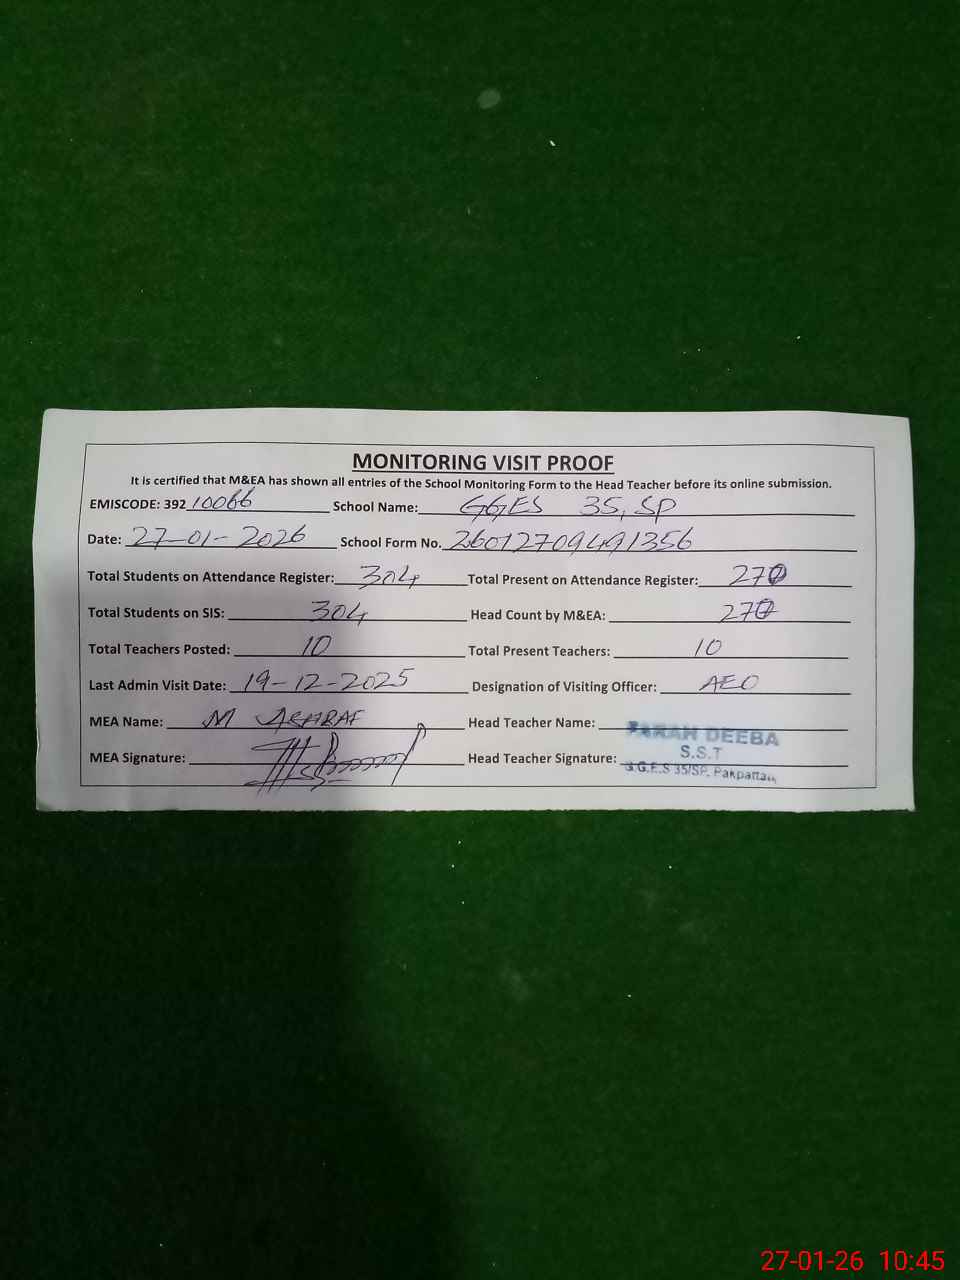 MONITORING VISIT PROOF
It is certified that M&EA has shown all entries of the School Monitoring Form to the Head Teacher before its online submission.
EMISCODE: 392 10066 School Name: GGES 35, SP
Date: 27-01-2026 School Form No. 26012709491356
Total Students on Attendance Register: 304 Total Present on Attendance Register: 270
Total Students on SIS: 304 Head Count by M&EA: 270
Total Teachers Posted: 10 Total Present Teachers: 10
Last Admin Visit Date: 19-12-2025 Designation of Visiting Officer: AEO
MEA Name: M ASHRAF Head Teacher Name: FARAH DEEBA
S.S.T
MEA Signature: Head Teacher Signature: G.G.E.S 35/SP, Pakpattan
27-01-26 10:45